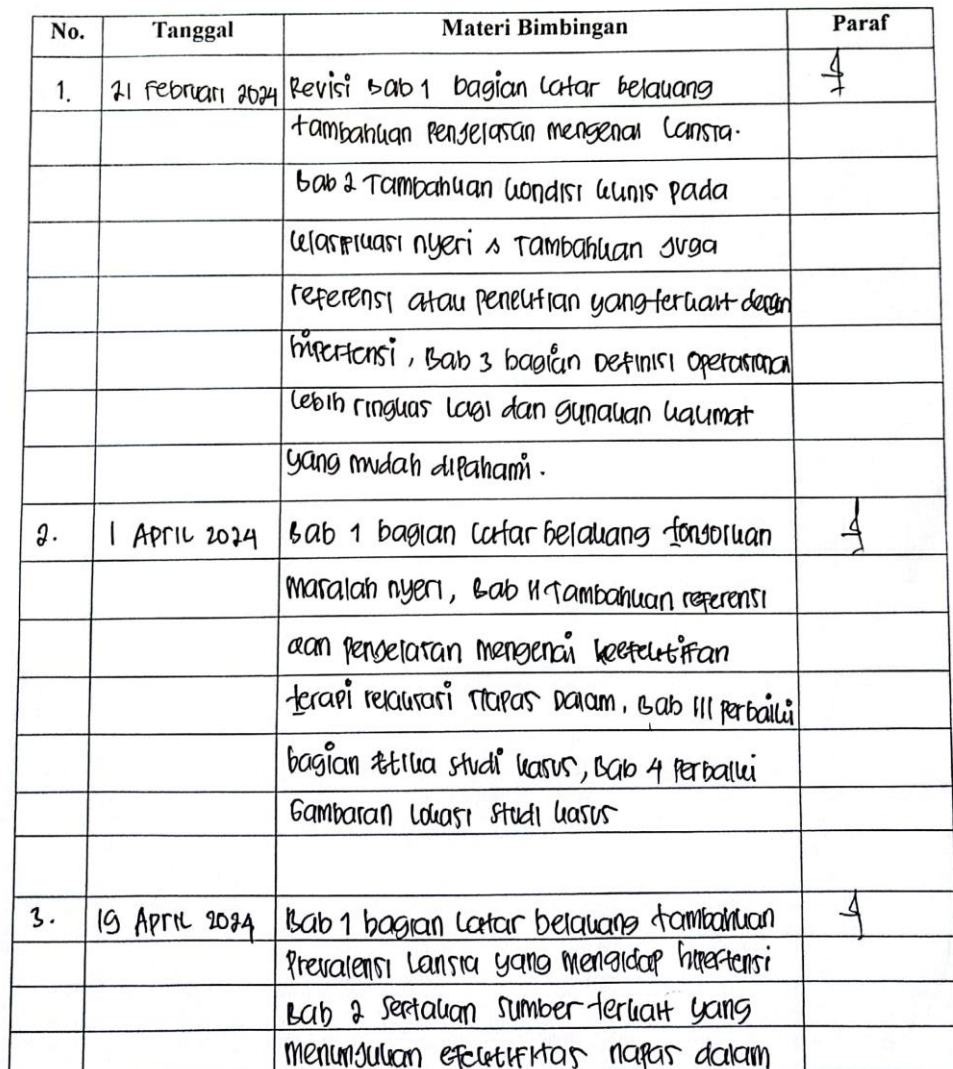 No. Tanggal Materi Bimbingan Paraf
1. 21 Februari 2024 Revisi Bab 1 bagian latar belakang
tambahkan penjelasan mengenai Lansia.
Bab 2 Tambahkan kondisi klinis pada
klasifikasi nyeri & Tambahkan juga
referensi atau penelitian yang terkait dengan
hipertensi, Bab 3 bagian Definisi Operasional
lebih ringkas lagi dan gunakan kalimat
yang mudah dipahami.
2. 1 April 2024 Bab 1 bagian latar belakang tonjolkan
masalah nyeri, Bab II Tambahkan referensi
dan penjelasan mengenai keefektifan
terapi relaksasi napas dalam, Bab III perbaiki
bagian etika studi kasus, Bab 4 Perbaiki
Gambaran lokasi studi kasus
3. 19 April 2024 Bab 1 bagian latar belakang tambahkan
Prevalensi Lansia yang mengidap hipertensi
Bab 2 sertakan sumber terkait yang
menunjukan efektifitas napas dalam